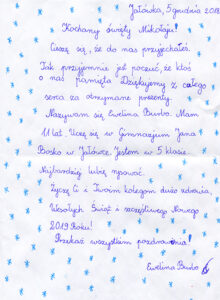 Jatówka, 5 grudnia 2018
Kochany święty Mikołaju!
Cieszę się, że do nas przyjechałeś.
Tak przyjemnie jest poczuć, że ktoś
o nas pamięta. Dziękujemy z całego
serca za otrzymane prezenty.
Nazywam się Ewelina. Mam
11 lat. Uczę się w Gimnazjum Jana
Bosko w Jatówce. Jestem w 5 klasie.
Najbardziej lubię rysować.
Życzę Ci i Twoim kolegom dużo zdrowia,
Wesołych Świąt i szczęśliwego Nowego
2019 Roku!
Przekaż wszystkim pozdrowienia!
Ewelina